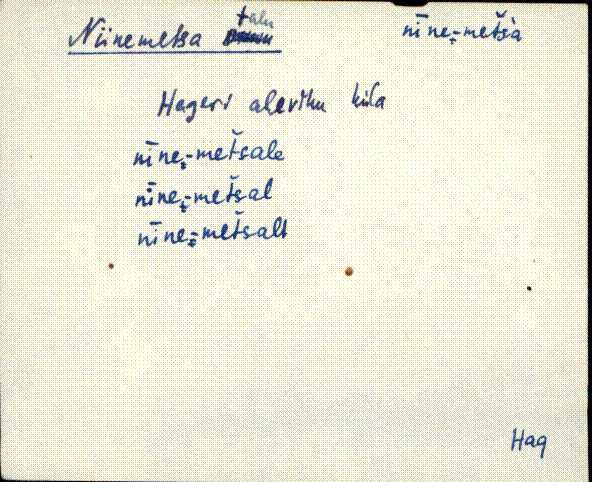 Niinemetsa talu nīne̬-metšà
Hageri aleviku küla
nīne̬-metšale
nīne̬-metšal
nīne̬-metšalt
Hag